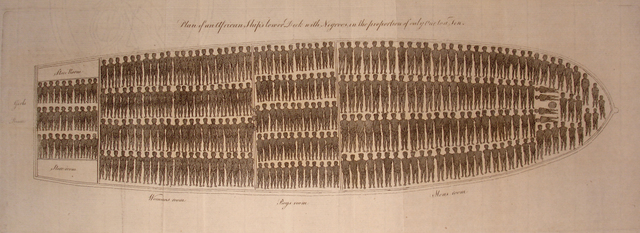 Plan of an African Ship's lower Deck with Negroes in the proportion of only One to a Ton.
Store Room
Girls
Room
Store room
Womens room
Boys room
Mens room